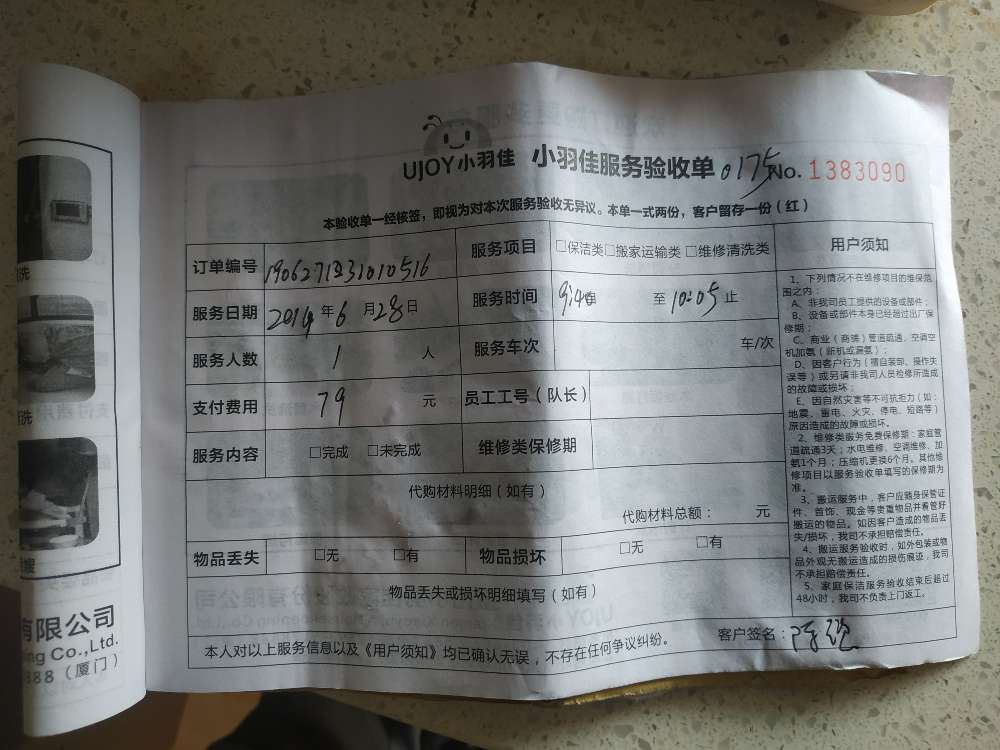 UJOY小羽佳 小羽佳服务验收单 0175 No. 1383090
本验收单一经核签，即视为对本次服务验收无异议。本单一式两份，客户留存一份（红）
订单编号 服务项目 □保洁类□搬家运输类 □维修清洗类
服务日期 年 6 月 28 日 服务时间 至 10:05 止
服务人数 1 人 服务车次 车/次
支付费用 79 元 员工工号（队长）
服务内容 □完成 □未完成 维修类保修期
代购材料明细（如有）
代购材料总额： 元
物品丢失 □无 □有 物品损坏 □无 □有
物品丢失或损坏明细填写（如有）
客户签名：
本人对以上服务信息以及《用户须知》均已确认无误，不存在任何争议纠纷。
用户须知
1、下列情况不在维修项目的维保范
围之内：
A、非我司员工提供的设备或部件；
B、设备或部件本身已经超过出厂保
修期；
C、商业（商铺）管道疏通，空调空
机加氨（新机或漏氨；
D、因客户行为（擅自装卸、操作失
误等）或另请非我司人员检修所造成
的故障或损坏；
E、因自然灾害等不可抗拒力（如：
地震、雷电、火灾、停电、短路等）
原因造成的故障或损坏。
2、维修类服务免费保修期：家庭管
道疏通3天；水电维修、空调维修、加
氨1个月；压缩机更换6个月。其他维
修项目以服务验收单填写的保修期为
准。
3、搬运服务中，客户应随身保管证
件、首饰、现金等贵重物品并看管好
搬运的物品。如因客户造成的物品丢
失/损坏，我司不承担赔偿责任。
4、搬运服务验收时，如外包装或物
品外观无搬运造成的损伤痕迹，我司
不承担赔偿责任。
5、家庭保洁服务验收结束后超过
48小时，我司不负责上门返工。
有限公司
ing Co.,Ltd.
888（厦门）